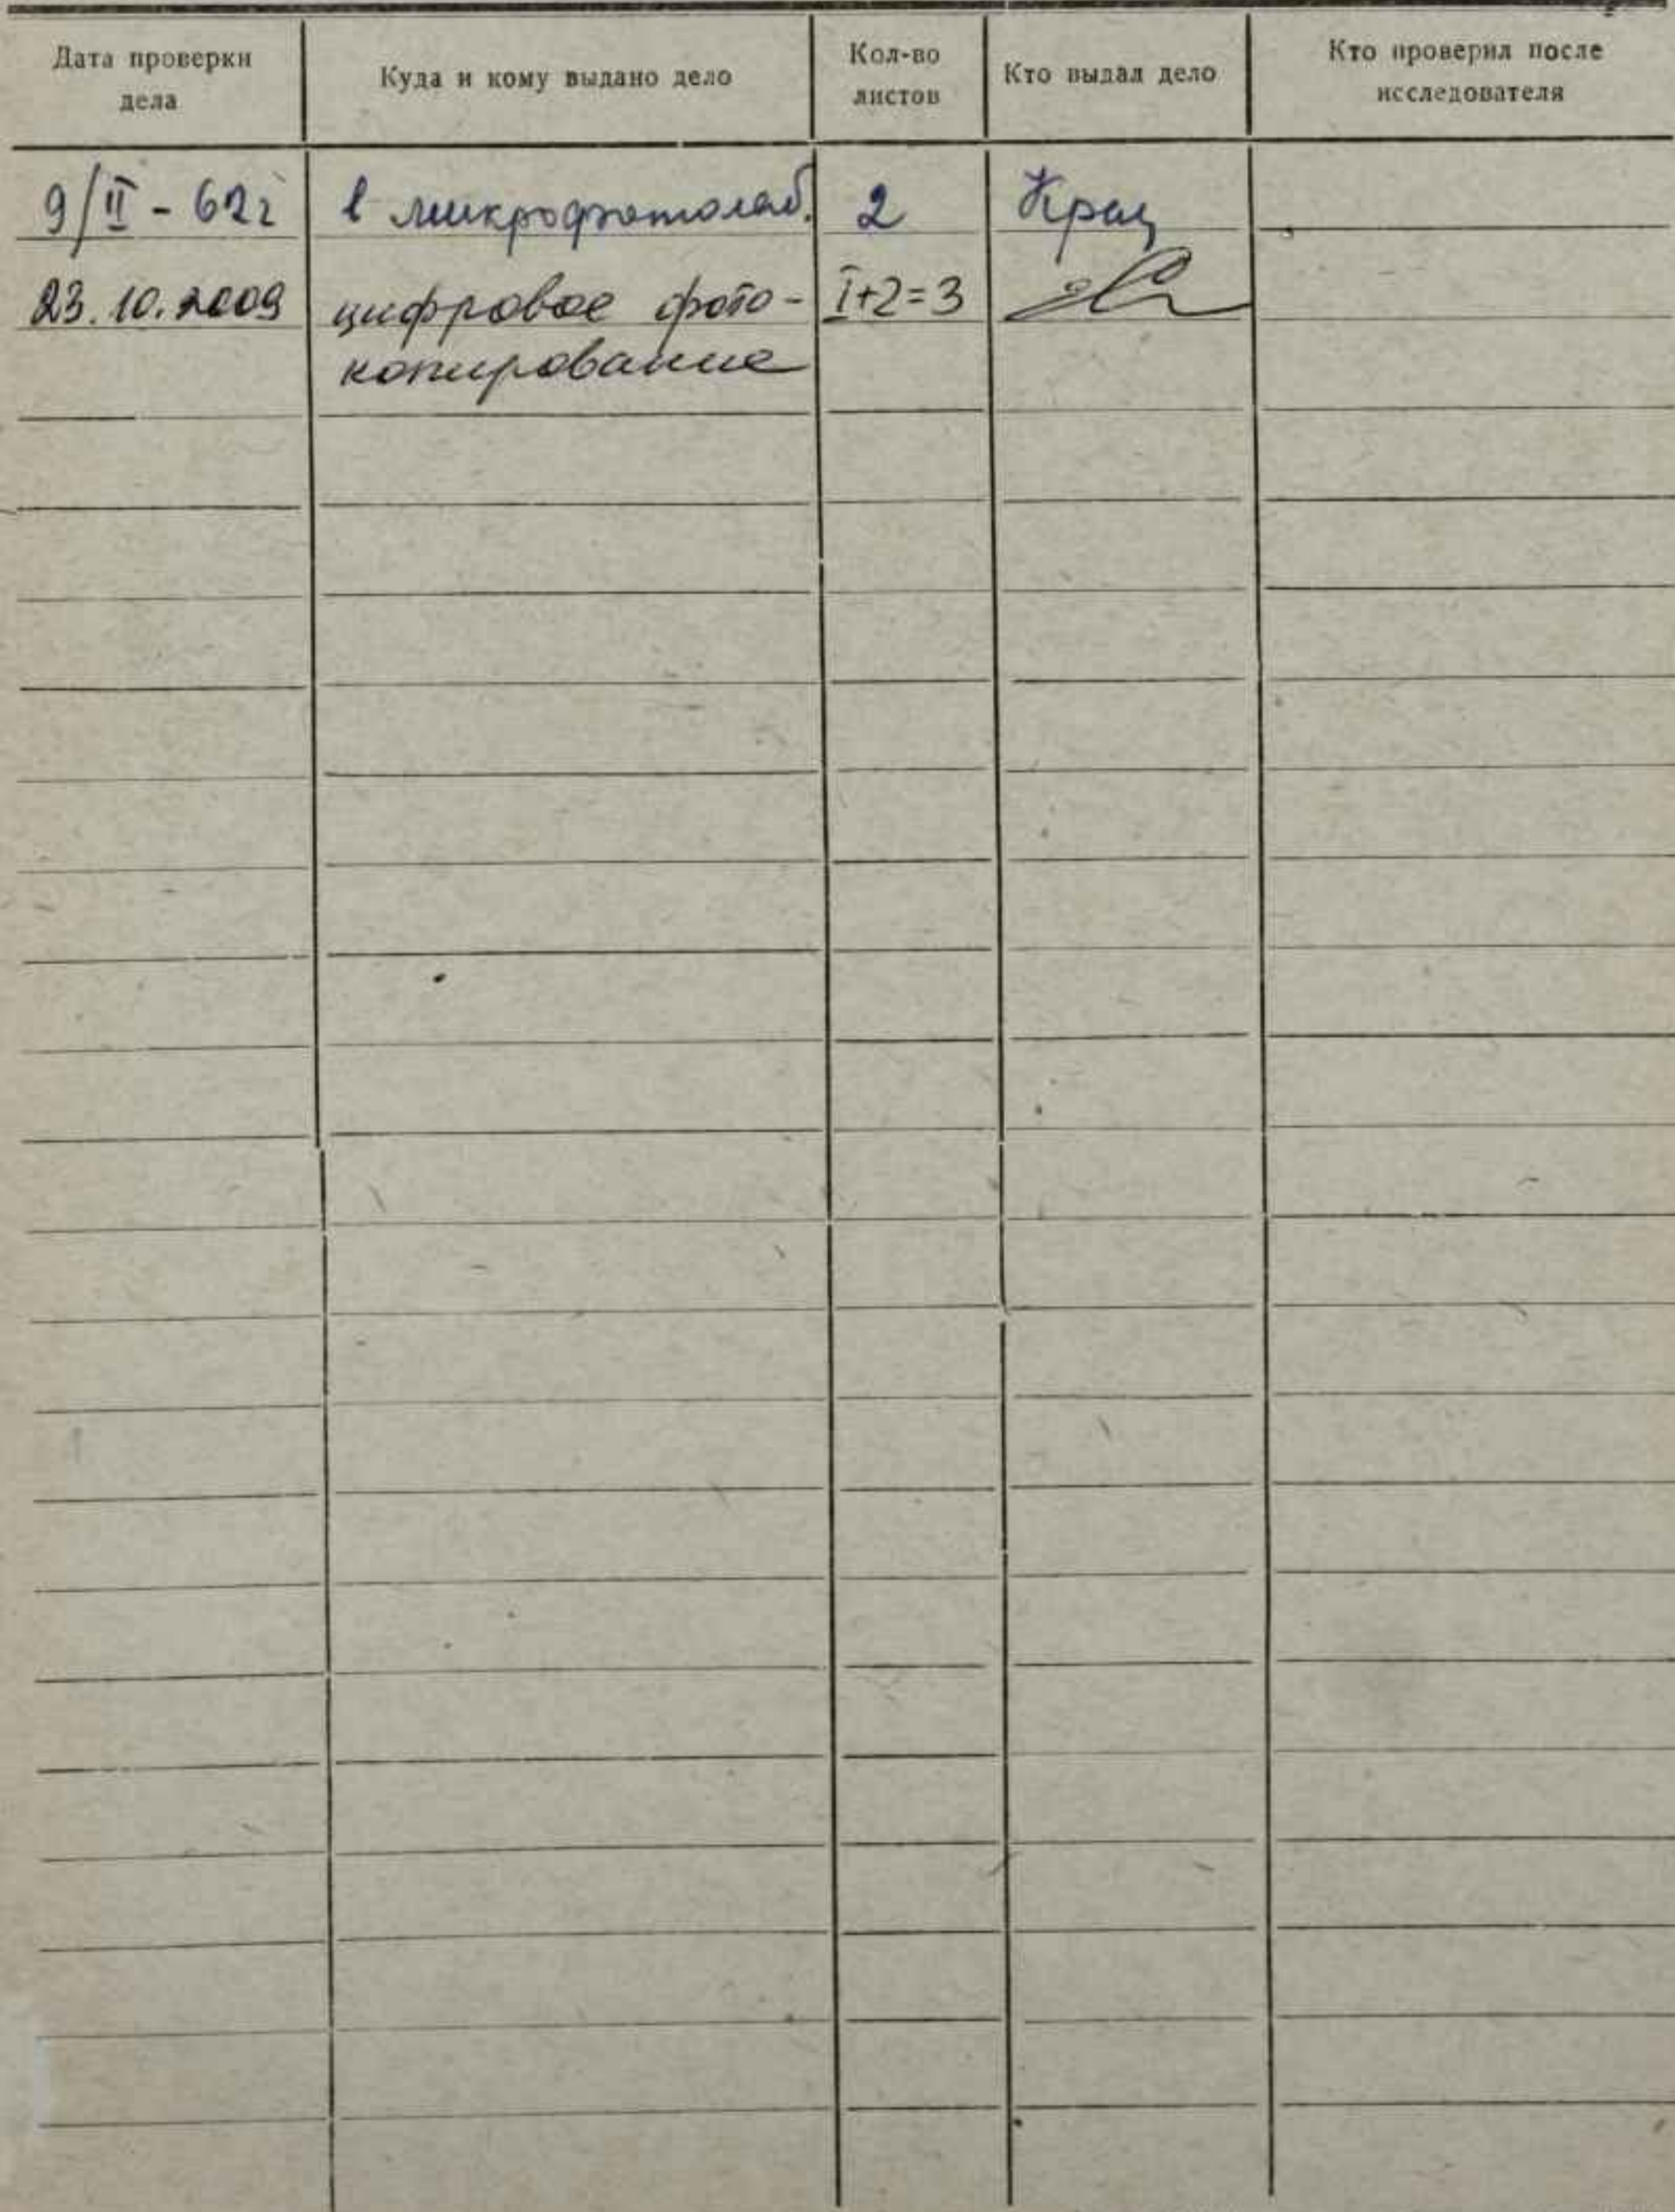 Дата проверки
дела
Куда и кому выдано дело
Кол-во
листов
Кто выдал дело
Кто проверил после
исследователя
9/II - 62г в микрофотолаб. 2
23.10.2009 цифровое фото- I+2=3
копирование